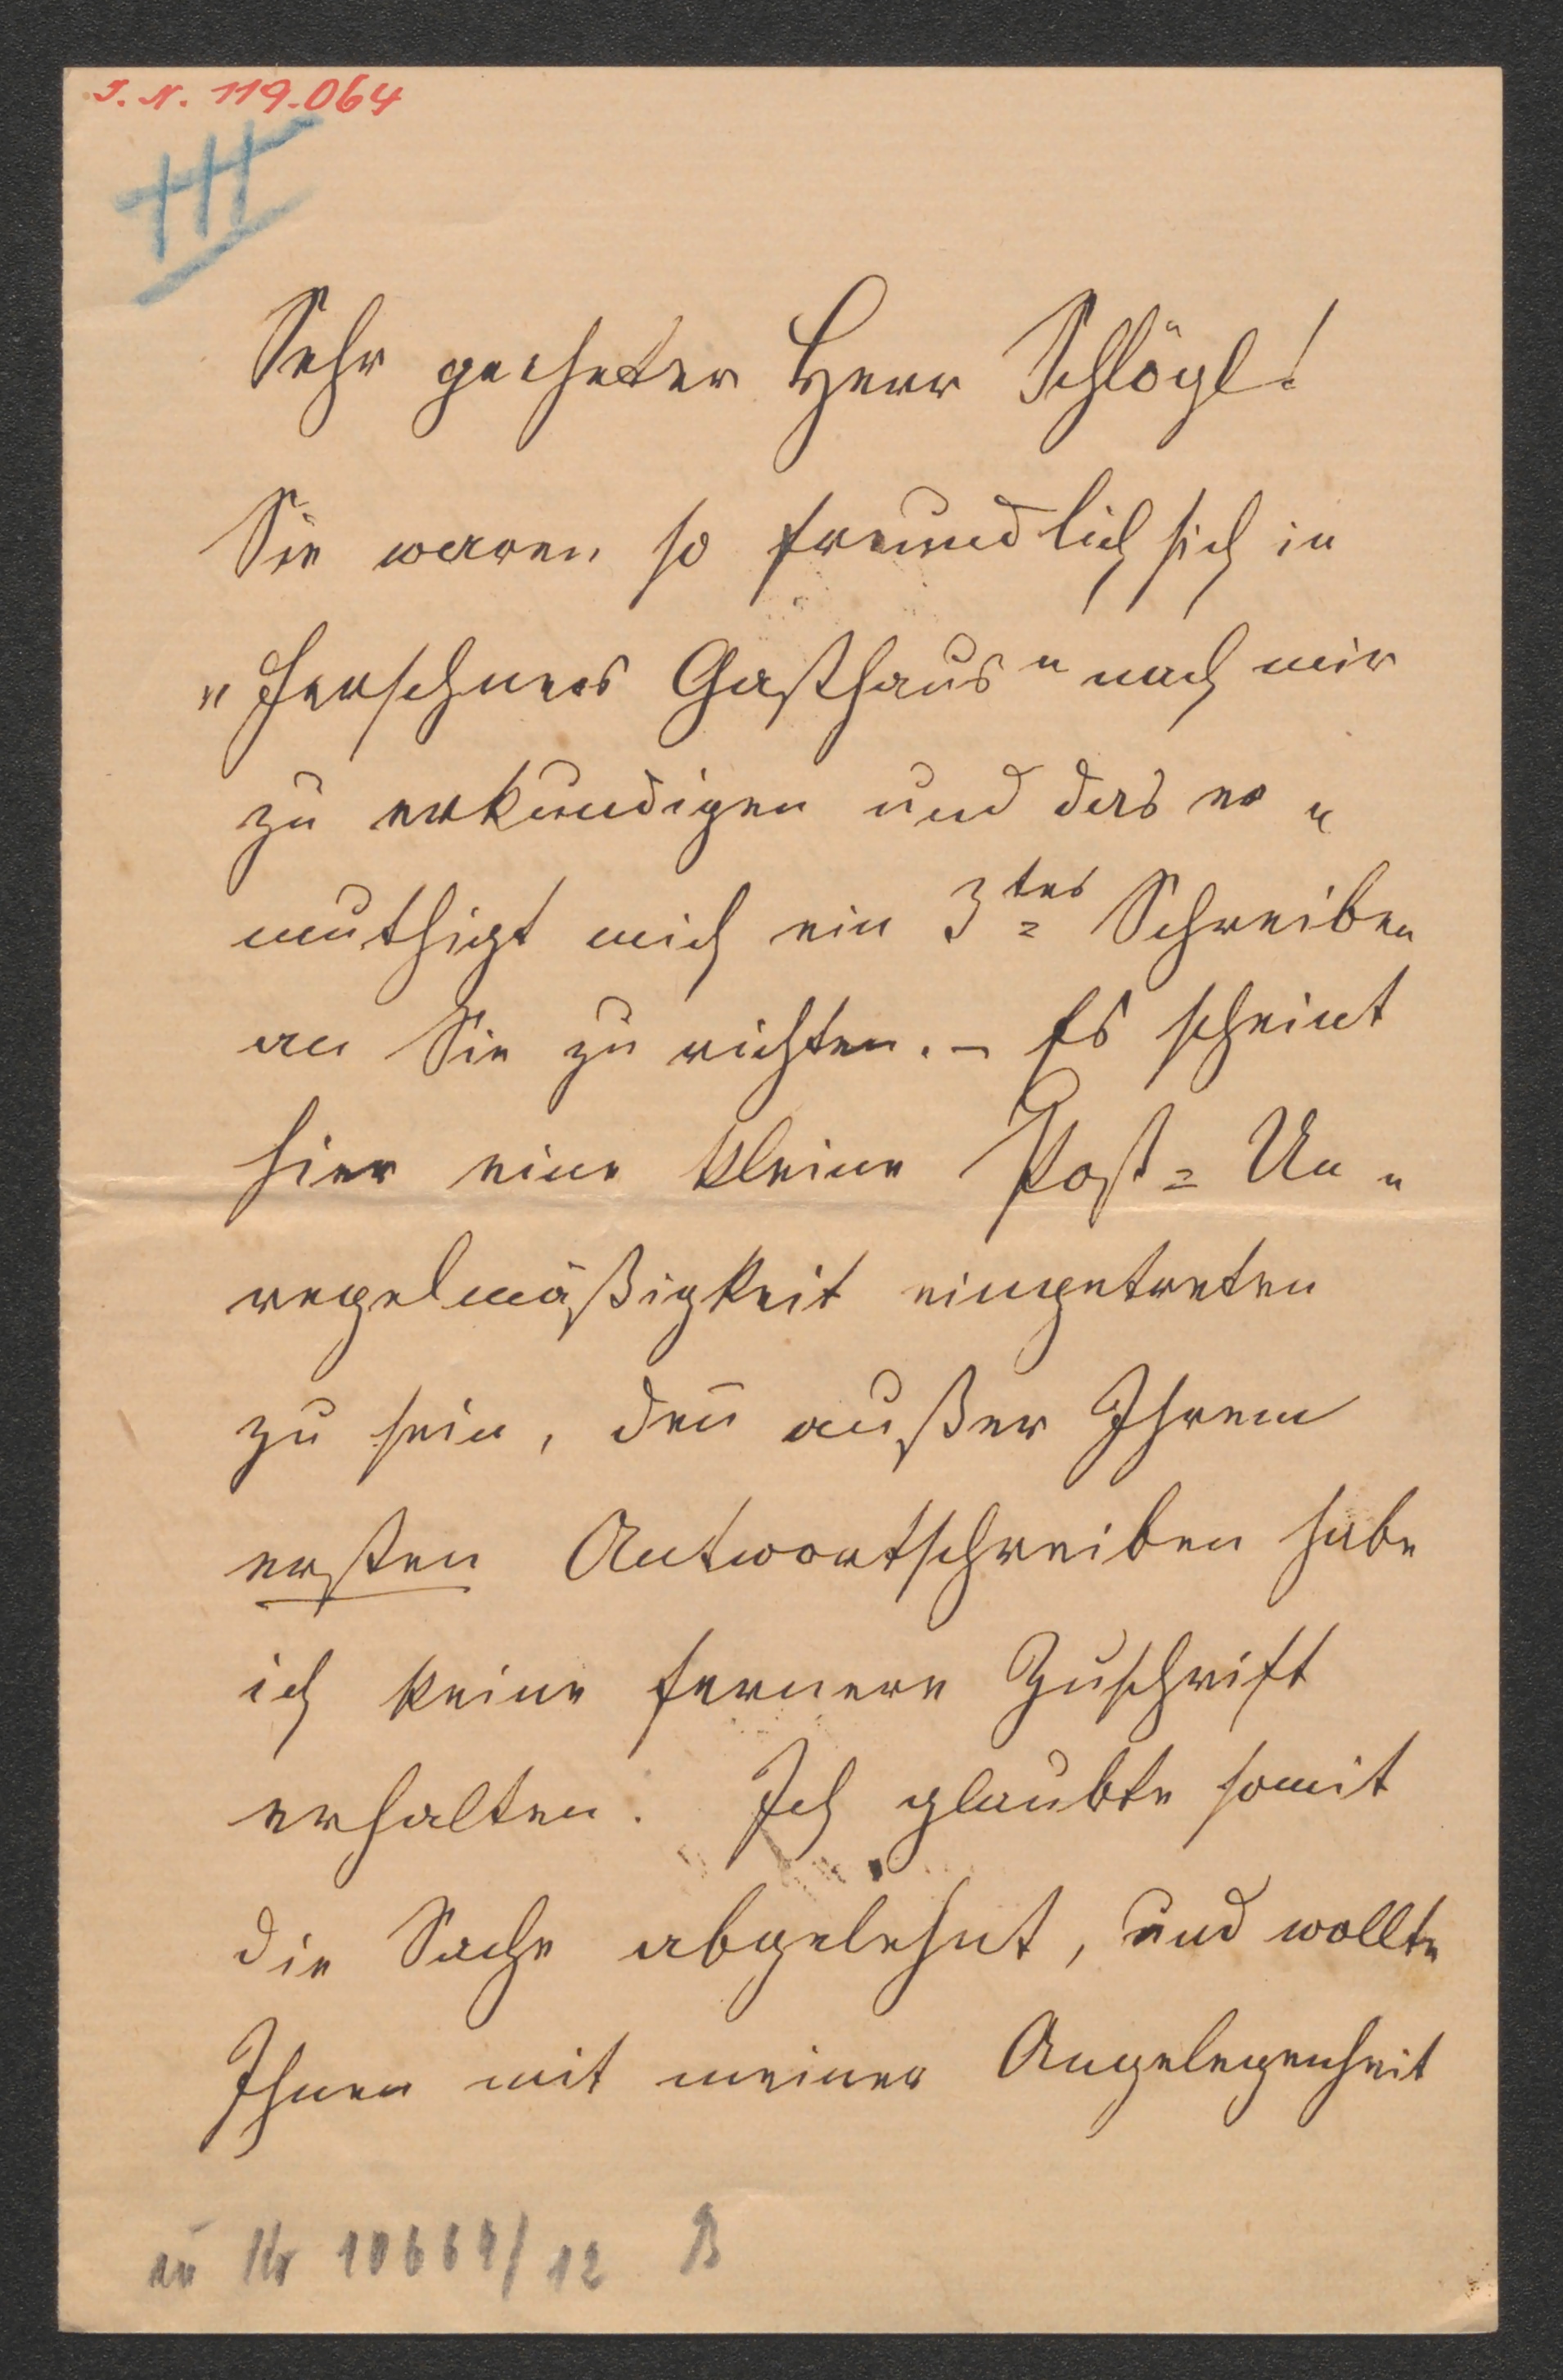 I. N. 119.064
III
Sehr geehrter Herr Schlögl!
Sie waren so freundlich sich in
„ Gasthaus“ nach mir
zu erkundigen und das er„
muthigt mich ein 3tes Schreiben
an Sie zu richten. – Es scheint
hier eine kleine Post= Un„
regelmäßigkeit eingetreten
zu sein, deñ außer Ihrem
ersten Antwortschreiben habe
ich keine fernere Zuschrift
erhalten. Ich glaubte somit
die Sache abgelehnt, und wollte
Ihnen mit meiner Angelegenheit
Nr 10664/12 B